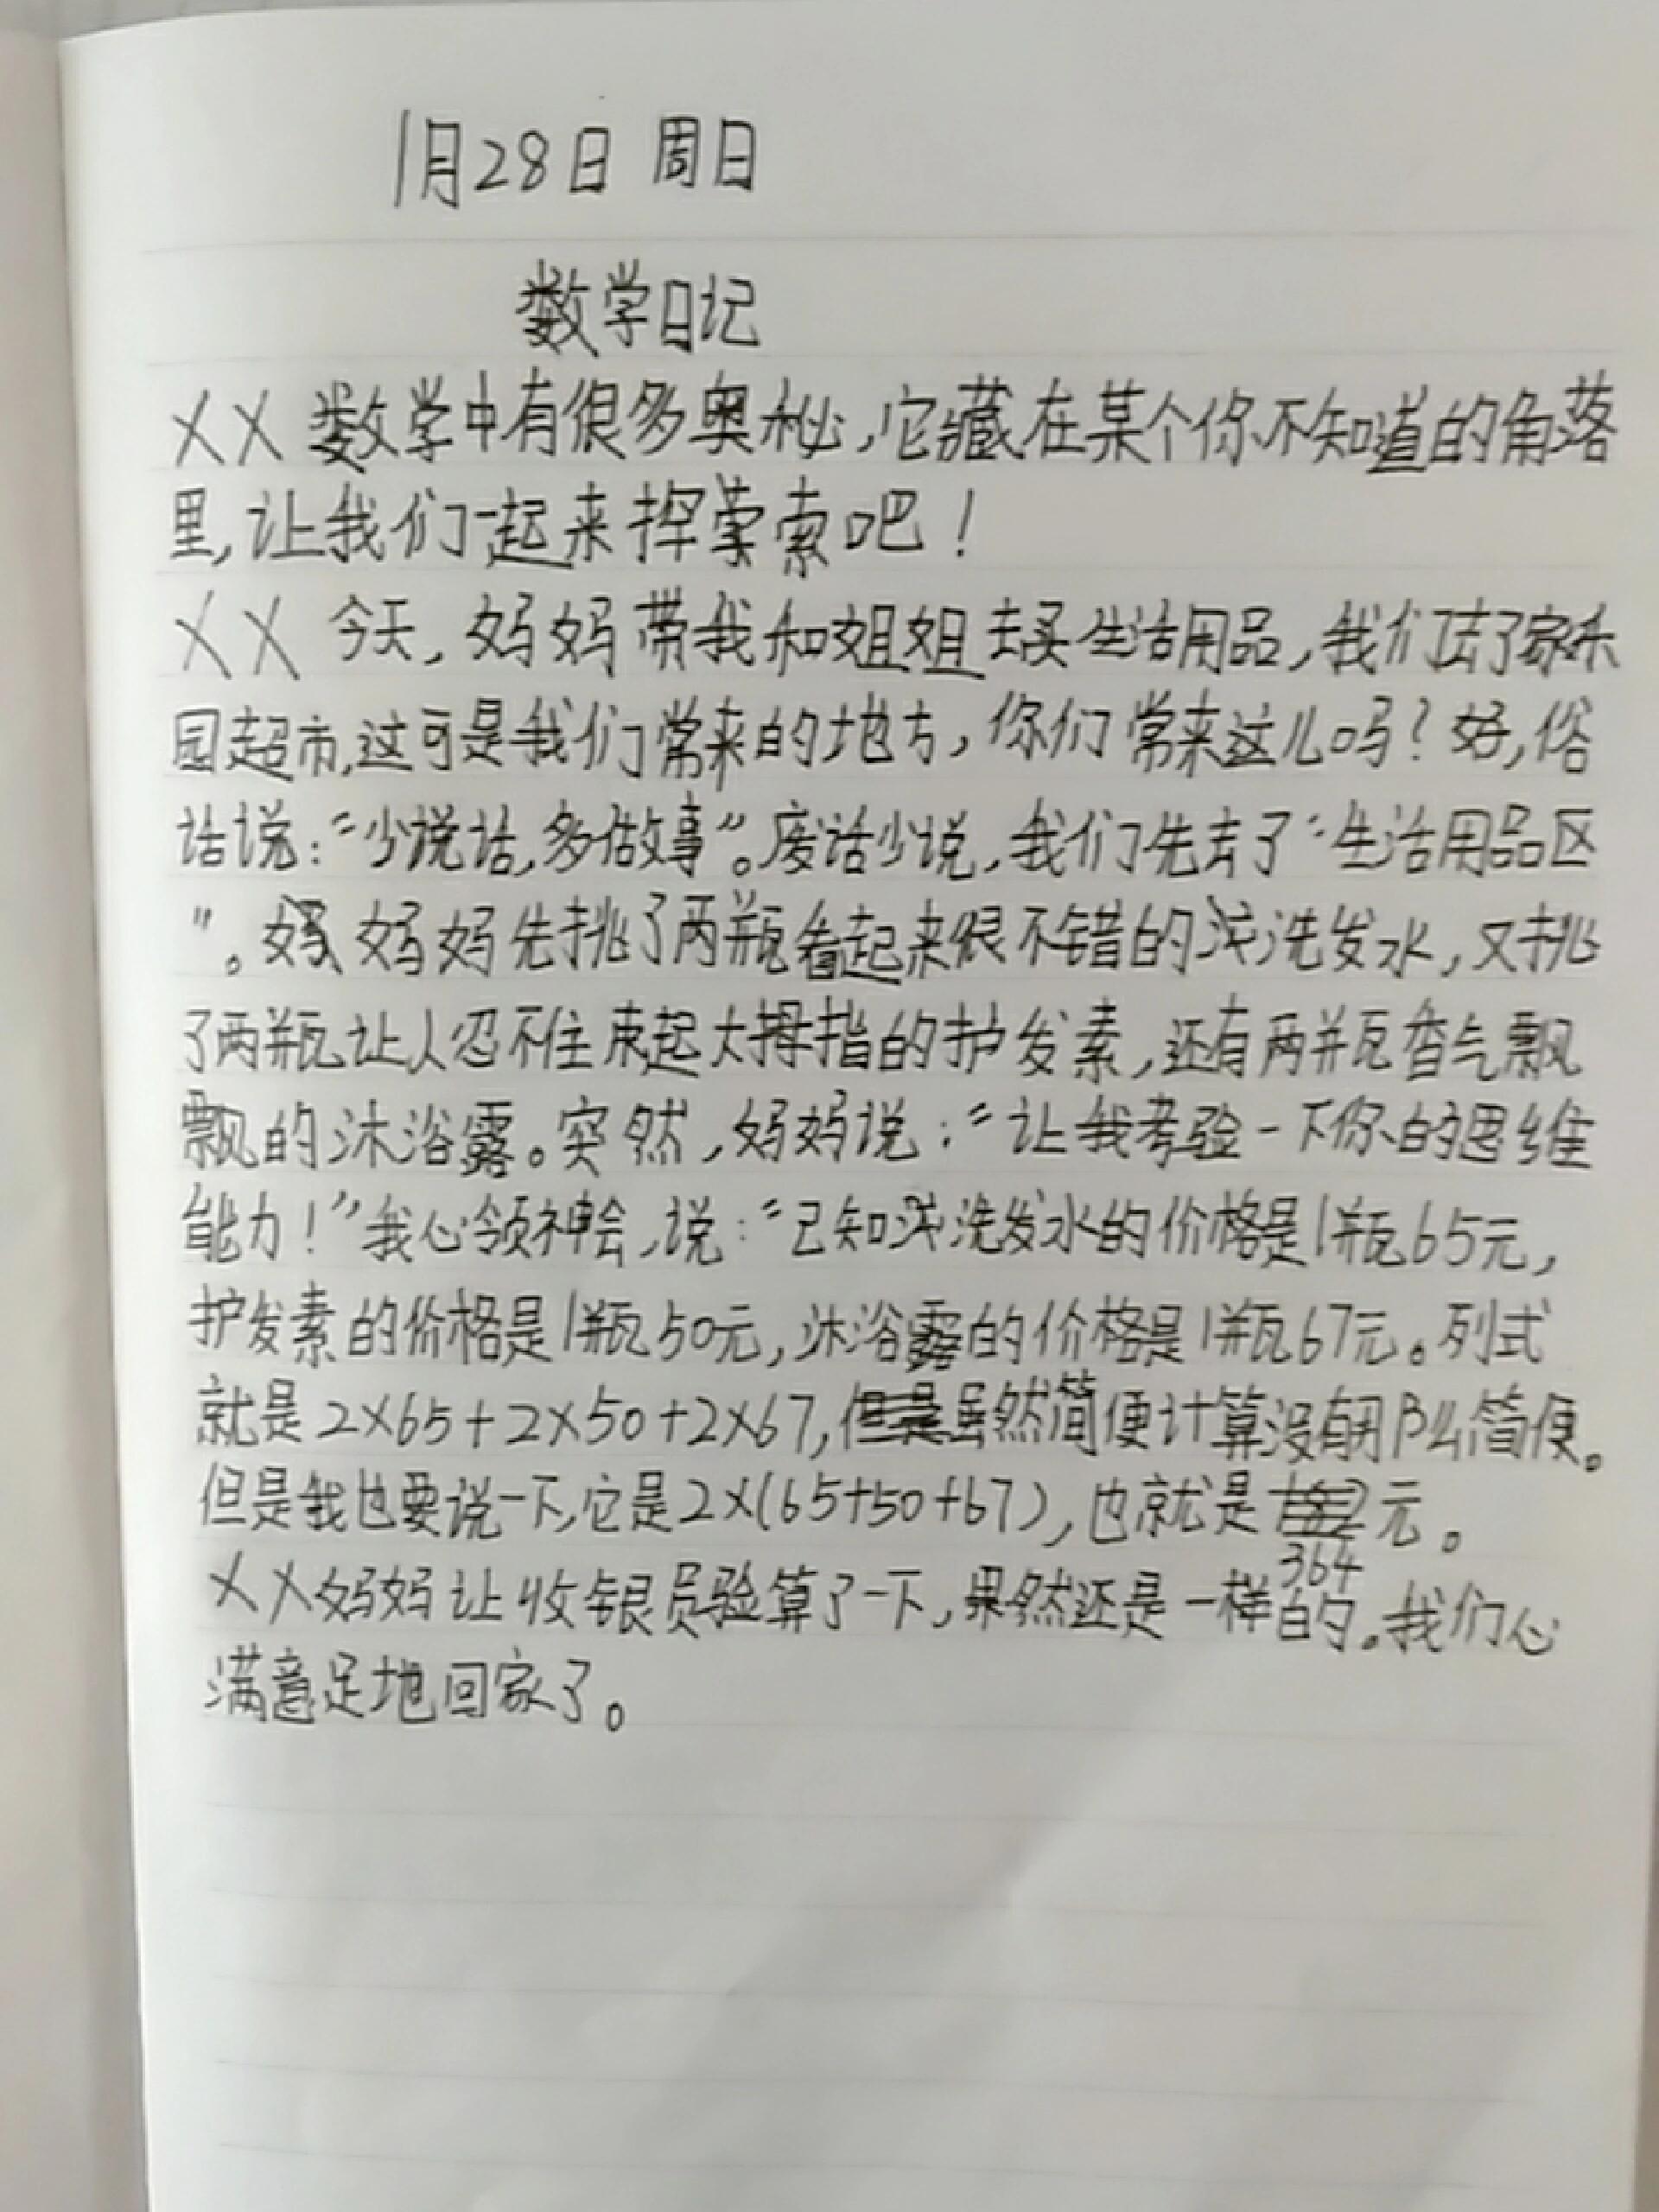 1月28日 周日
数学日记
XX 数学中有很多奥秘,它藏在某个你不知道的角落
里,让我们一起来探索吧!
XX 今天,妈妈带我和姐姐去买生活用品,我们去了家乐
园超市,这可是我们常来的地方,你们常来这儿吗?好,俗
话说:“少说话,多做事”。废话少说,我们先去了“生活用品区
”。妈妈先挑了两瓶看起来很不错的洗发水,又挑
了两瓶让人忍不住束起大拇指的护发素,还有两瓶香气飘
飘的沐浴露。突然,妈妈说:“让我考验一下你的思维
能力!”我心领神会,说:“已知洗发水的价格是1瓶65元,
护发素的价格是1瓶50元,沐浴露的价格是1瓶67元。列式
就是2X65+2X50+2X67,虽然简便计算没有那么简便。
但是我也要说一下,它是2X(65+50+67),也就是364元。
XX妈妈让收银员验算了一下,果然还是一样的。我们心
满意足地回家了。